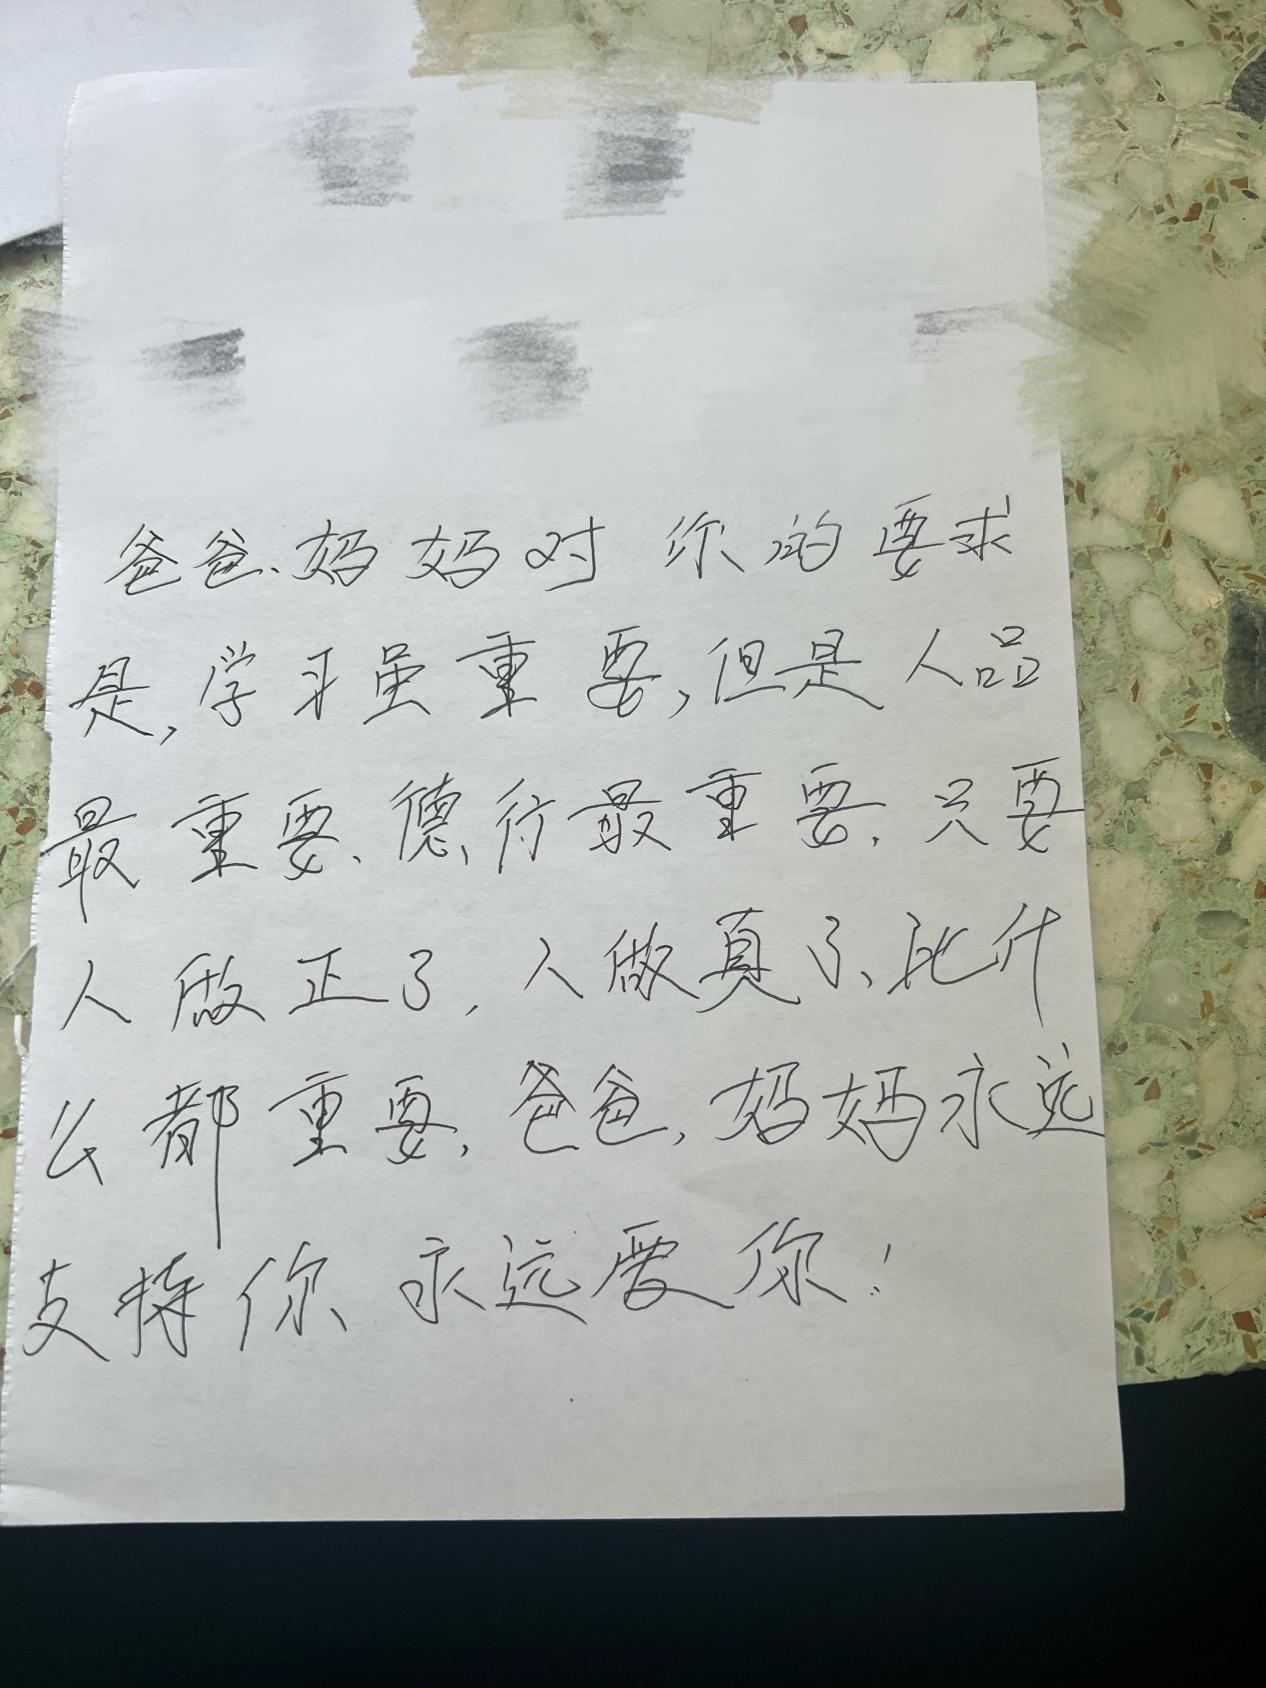 爸爸、妈妈对你的要求
是,学习虽重要,但是人品
最重要、德行最重要.只要
人做正了,人做真了、比什
么都重要,爸爸,妈妈永远
支持你永远爱你!